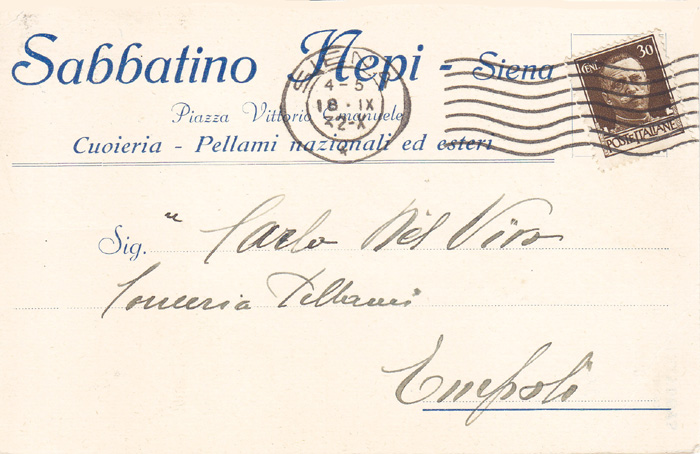 Sabbatino Nepi - Siena
Piazza Vittorio Emanuele
Cuoieria - Pellami nazionali ed esteri
SIENA
4-5
18·IX
32-X
CENT. 30
POSTE ITALIANE
Sig. Carlo Del Vivo
Conceria Pellami
Empoli